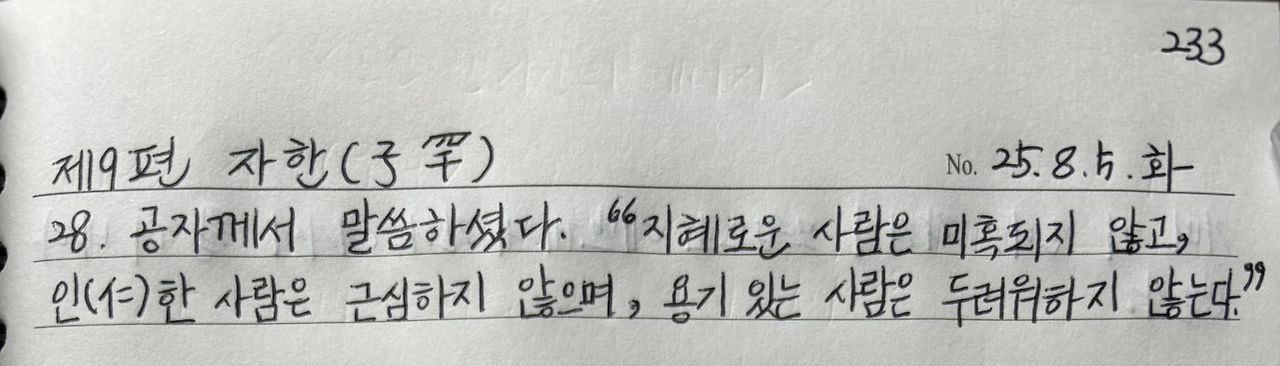 233
제9편 자한(子罕) No. 25.8.5.화
28. 공자께서 말씀하셨다. “지혜로운 사람은 미혹되지 않고,
인(仁)한 사람은 근심하지 않으며, 용기 있는 사람은 두려워하지 않는다.”